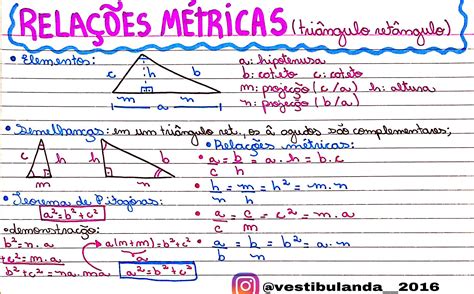 RELAÇÕES MÉTRICAS (triângulo retângulo)
• Elementos:
c h b
m n
a
a: hipotenusa
b: cateto c: cateto
m: projeção (c/a) h: altura
n: projeção (b/a)
• Semelhanças: em um triângulo ret., os â agudos são complementares;
c h
m
h b
n
• Relações métricas:
• a = b = a.h = b.c
c h
• h = m = h² = m.n
n h
• a = c = c² = m.a
c m
• a = b = b² = a.n
b n
• Teorema de Pitágoras:
a² = b² + c²
• demonstração:
b² = n.a
+c² = m.a
b² + c² = na.ma
a(m+m) = b² + c²
a² = b² + c²
@vestibulanda_2016